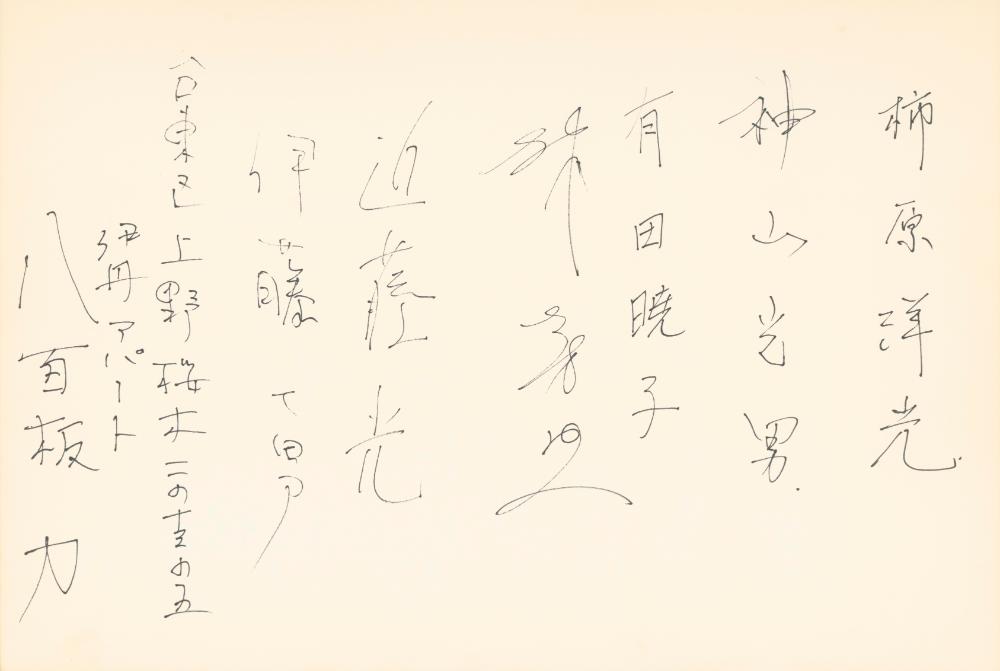 柿原洋光.
神山光男.
有田暁子
近藤光
伊藤
台東区上野桜木二の
伊丹アパート
八百板力